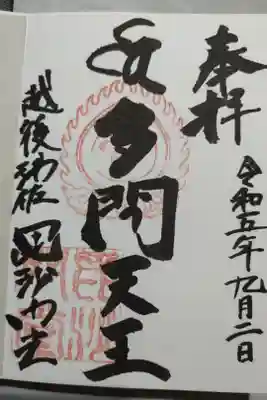 奉拝
令和五年九月二日
多聞天王
越後浦佐 毘沙門堂